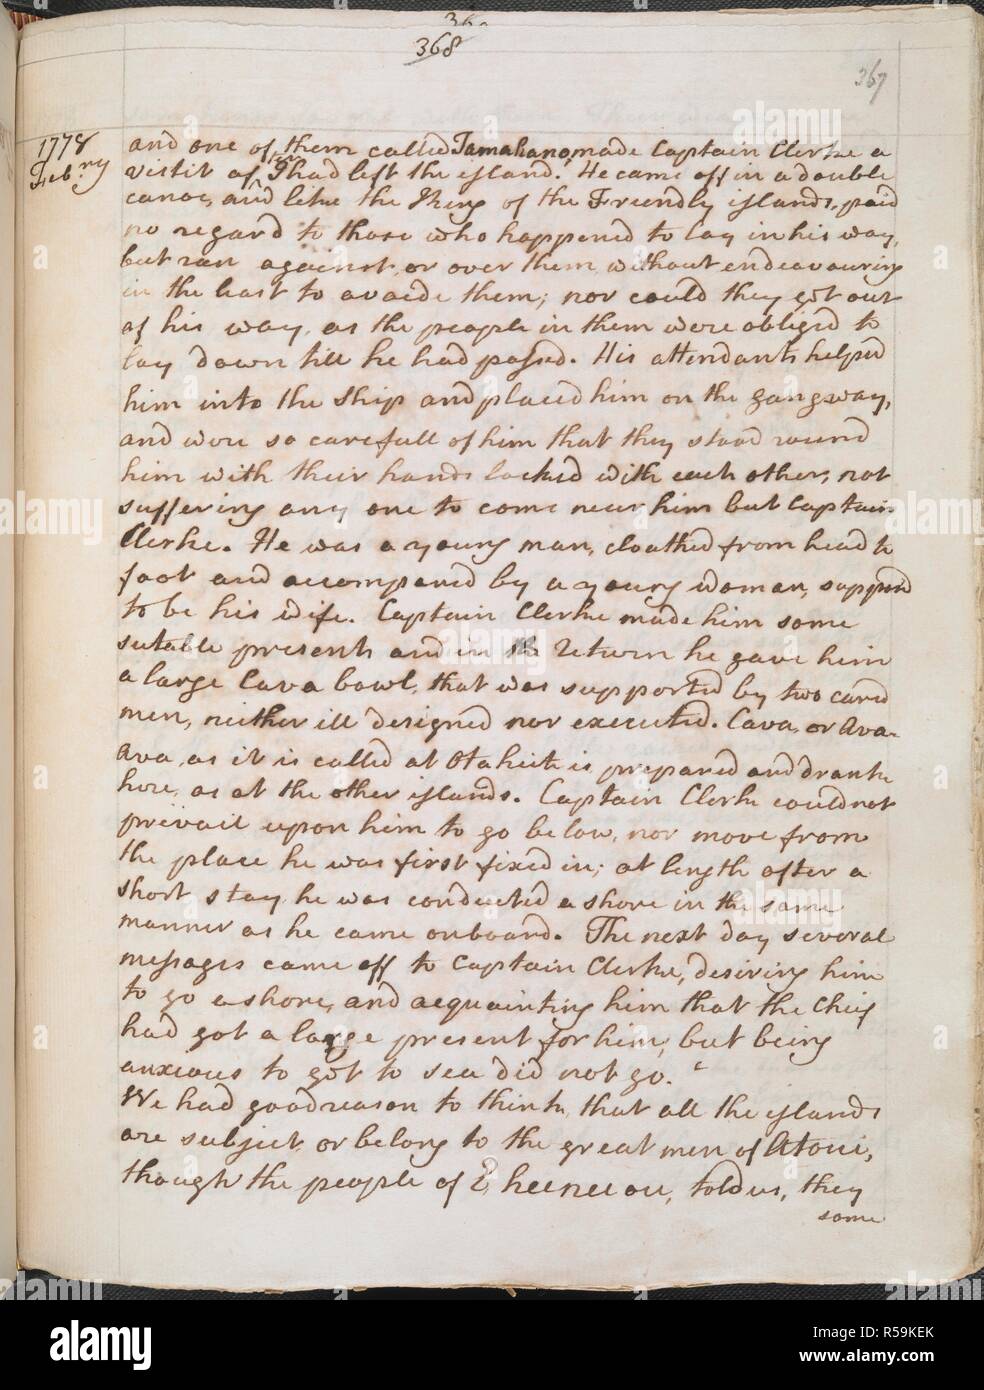 360
368
367
1778
Feb:ry
and one of them called Tamahano, made Captain Clerke a
visit after I had left the island. He came off in a double
canoe, and like the King of the Freendly islands, paid
no regard to those who happened to lay in his way,
but ran against or over them without endeavouring
in the least to avoide them; nor could they get out
of his way, as the people in them were obliged to
lay down till he had passed. His attendants helped
him into the Ship and placed him on the gangway,
and were so carefull of him that they stood round
him with their hands locked with each other, not
suffering any one to come near him but Captain
Clerke. He was a young man, cloathed from head to
foot and accompaned by a young woman, supposed
to be his wife. Captain Clerke made him some
sutable presents and in return he gave him
a large Cava bowl, that was supported by two cared
men, neither ill designed nor executed. Cava, or Ava-
Ava, as it is called at Otaheite is prepared and dranke
here, as at the other islands. Captain Clerke could not
prevail upon him to go below, nor move from
the place he was first fixed in; at length after a
short stay he was conducted a shore in the same
manner as he came onboard. The next day several
messages came off to Captain Clerke, desiring him
to go ashore, and acquainting him that the Chief
had got a large present for him; but being
anxious to get to sea did not go.
We had good reason to think, that all the islands
are subject or belong to the great men of Atoui,
though the people of Eheeneeou, told us, they
some
alamy
alamy
alamy
Image ID: R59KEK
www.alamy.com